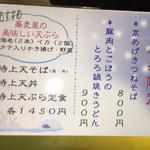 京あげきつねそば
800円
豚肉とごぼうの
とろろ鍋焼きうどん
900円
おすすめ
蕎麦屋の
美味しい天ぷら
海老(2本)イカ(2個)
ホタテ入りかき揚げ・野菜
特上天そば(温・冷)
特上天丼
特上天ぷら定食
各1450円